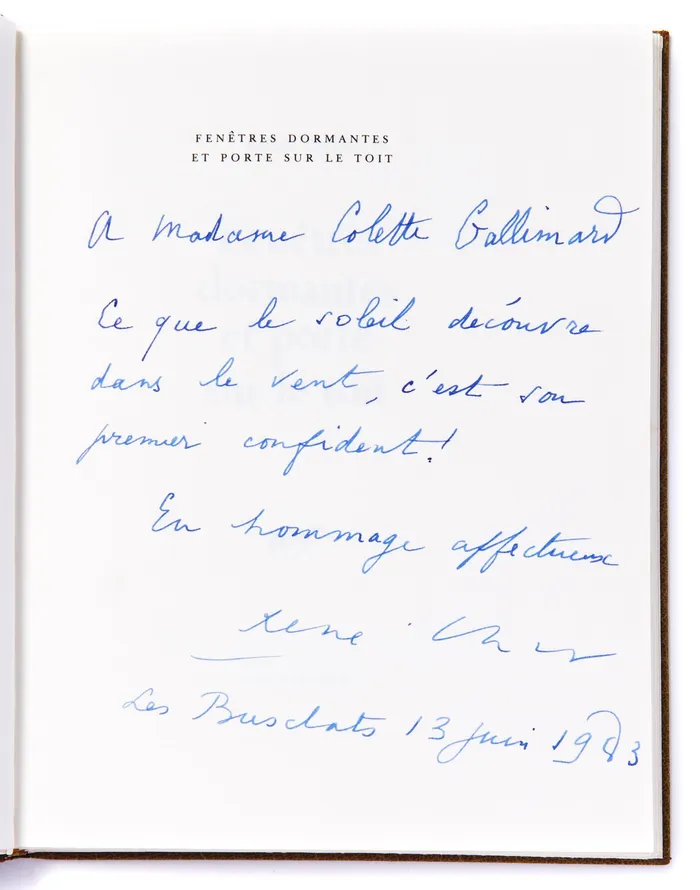 FENÊTRES DORMANTES
ET PORTE SUR LE TOIT
A Madame Colette Gallimard
Ce que le soleil découvre
dans le vent, c'est son
premier confident !
En hommage affectueux
René Char
Les Busclats 13 juin 1983